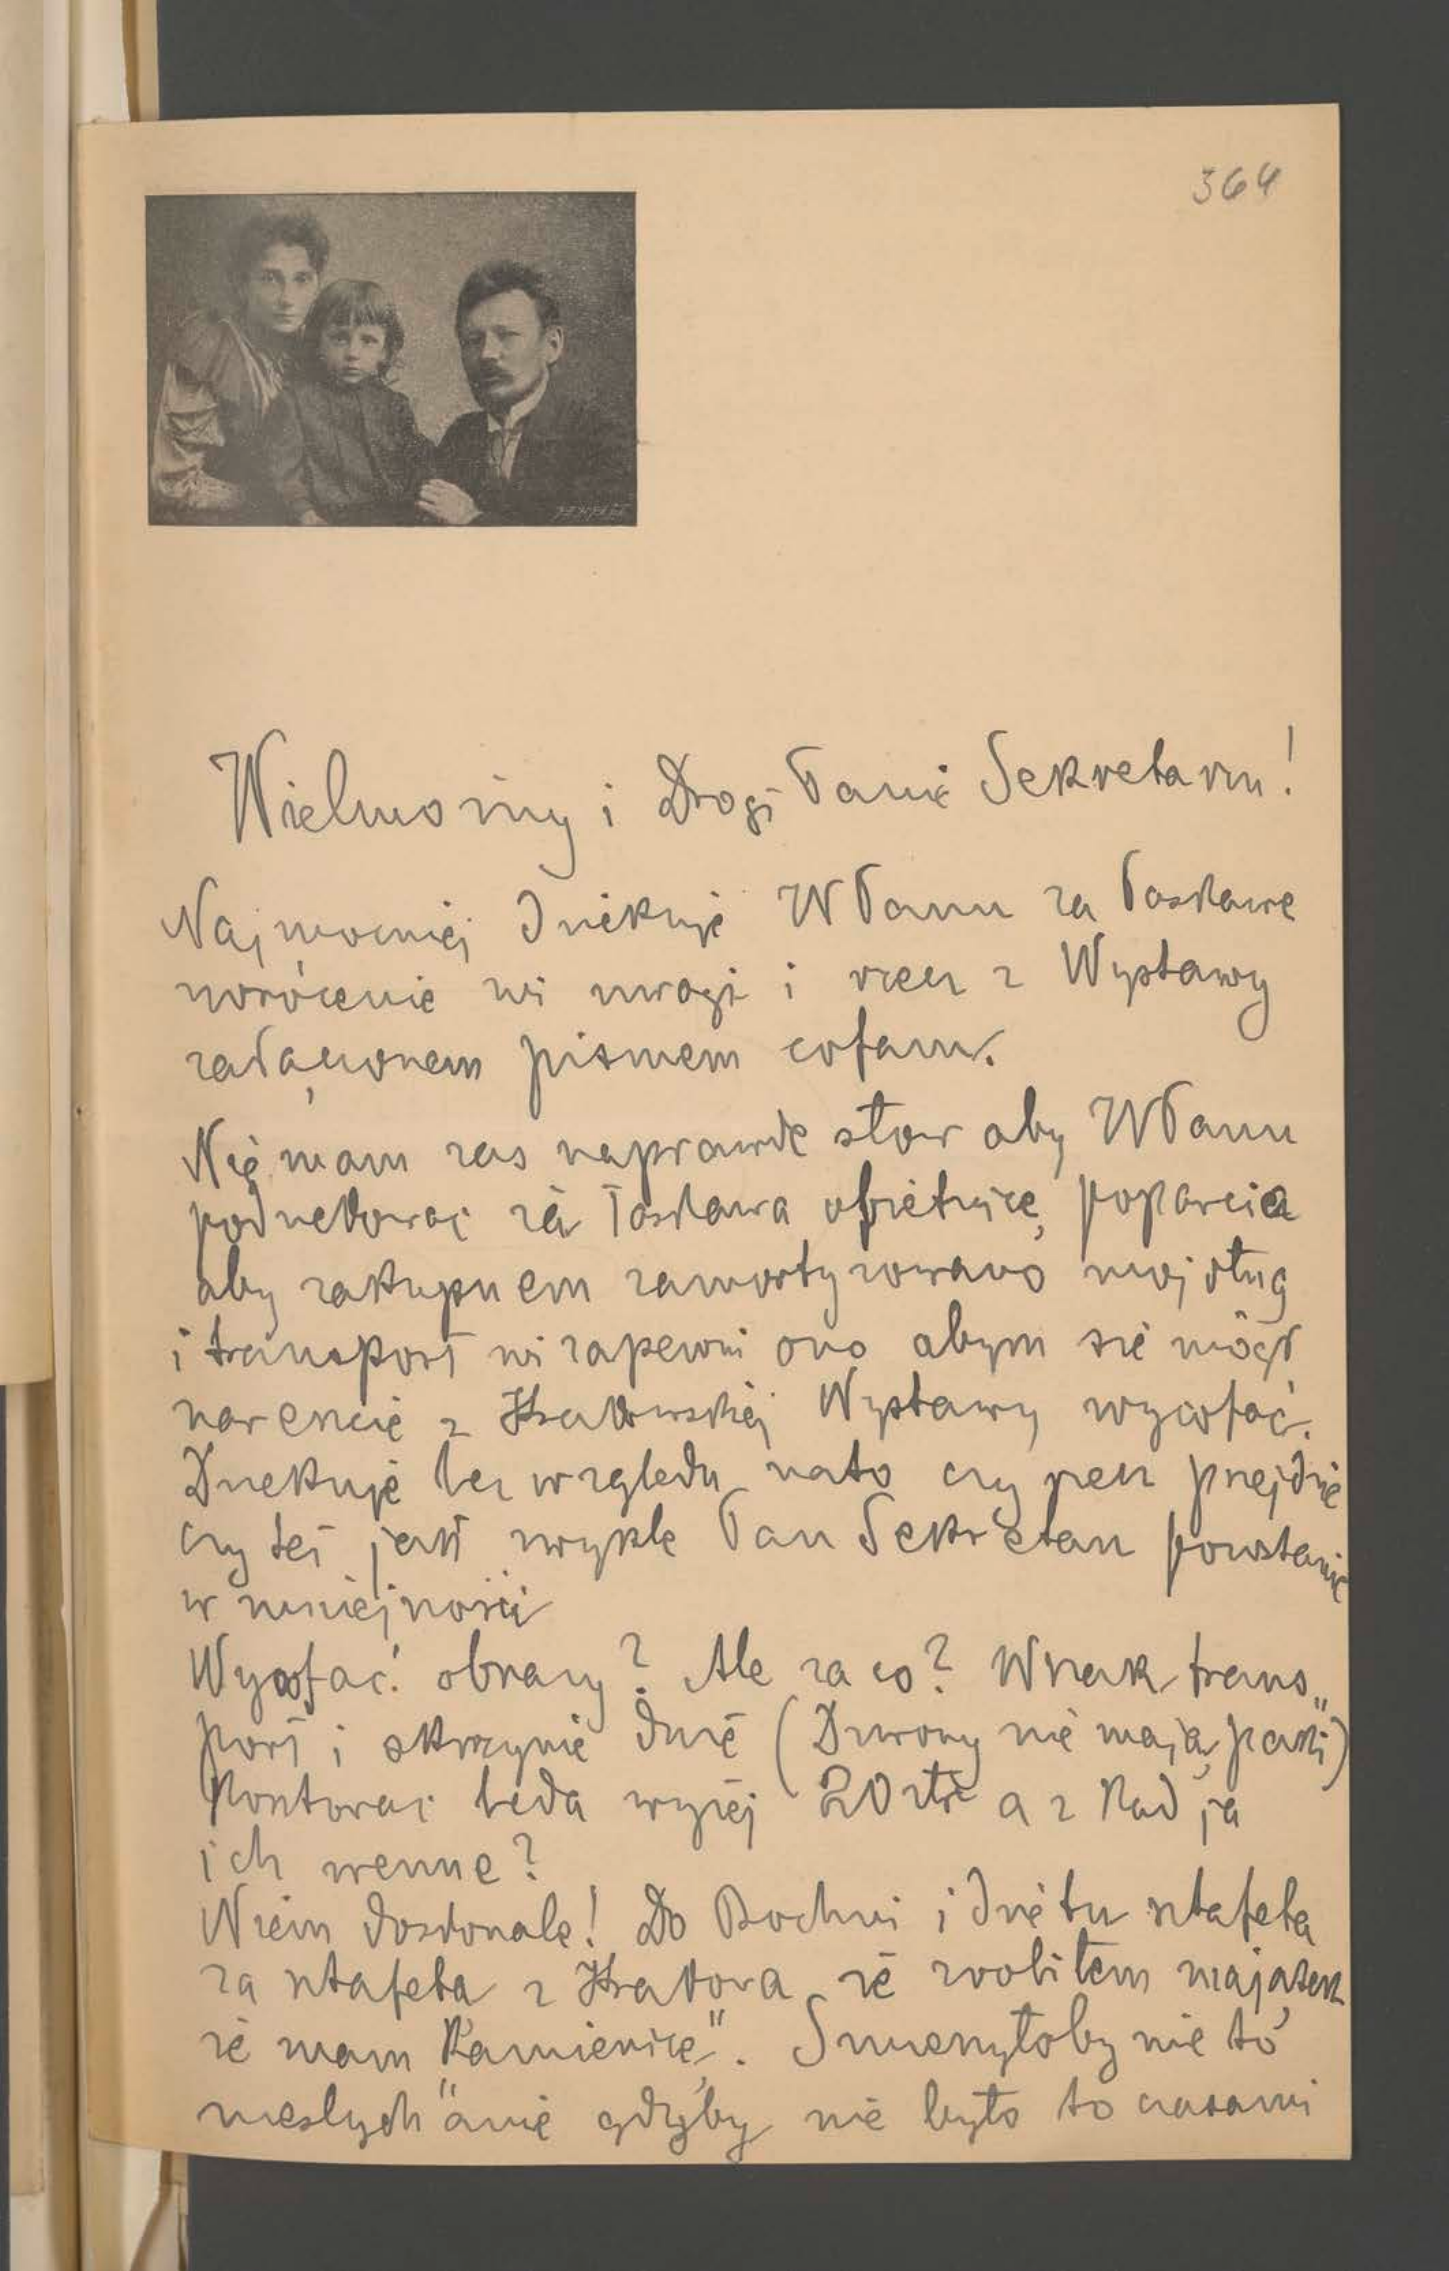 364
Wielmożny i Drogi Panie Sekretarzu!
Najmocniej Dziękuję WPanu za łaskawe
zwrócenie mi uwagi i rzecz z Wystawy
załączonem pismem cofam.
Nie mam zas naprawde słow aby WPanu
podziekować za łaskawa obietnicę poparcia
aby zakupnem zamortyzowano moj dług
i transport mi zapewniono abym sie mógł
nareszcie z Krakowskiej Wystawy wycofać.
Dziekuje bez wzgledu nato czy rzecz przejdzie
czy też jak zwykle Pan Sekretarz powstanie
w mniejności
Wycofac obrazy? Ale za co? Wszak trans„
port i skrzynie dwie (Dzwony nie mają paki)
Kosztowac beda wyżej 20 złr a z kad ja
ich wezmne?
Wiem doskonale! Do Bochni idzie tu sztafeta
za sztafeta z Krakowa że zrobiłem majatek
że mam "Kamienicę". Smieszyłoby nie to
nieslychanie gdyby nie było to czasami